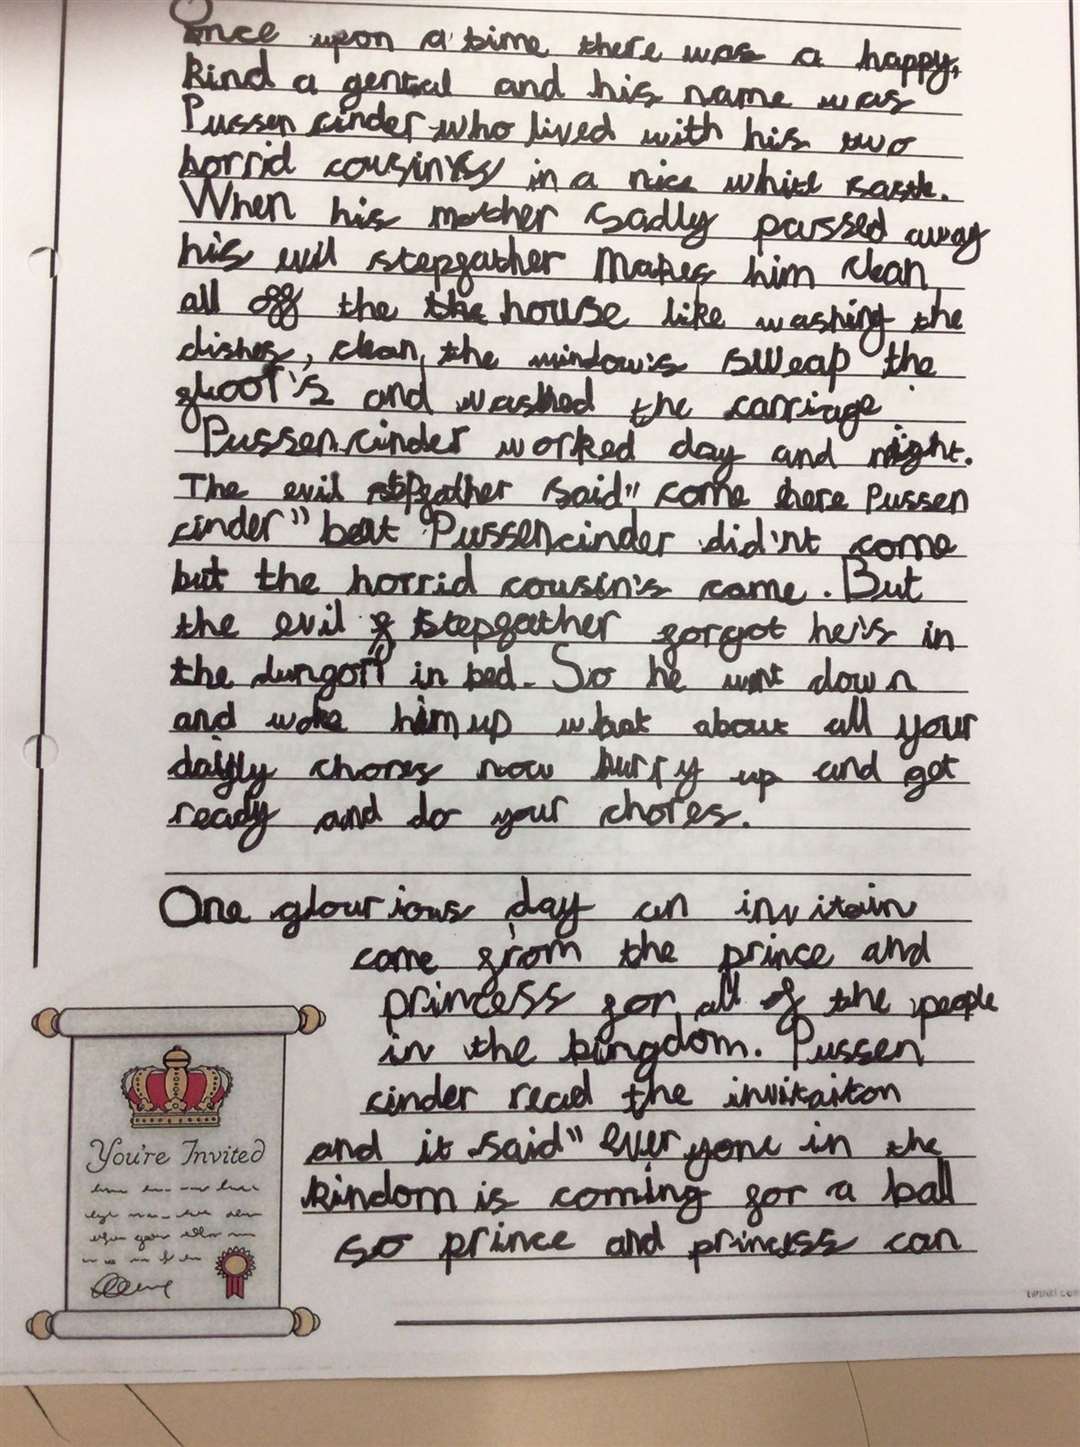 Once upon a time there was a happy,
kind a gental and his name was
Pussen cinder who lived with his two
horrid cousinss in a nice white castle.
When his mother sadly passed away
his evil stepfather makes him clean
all off the the house like washing the
dishes, clean, the window's sweap the
floor's and washed the carriage
Pussen.cinder worked day and night.
The evil stepfather said" come here Pussen
cinder" but Pussencinder did'nt come
but the horrid cousin's came. But
the evil stepfather forgot he's in
the dungon in bed. So he went down
and woke him up what about all your
daigly chores now hurry up and get
ready and do your chores.
One glourious day an invitain
came from the prince and
princess for all of the people
in the kingdom. Pussen
cinder read the invitaiton
and it said" everyone in the
kindom is coming for a ball
so prince and princess can
You're Invited